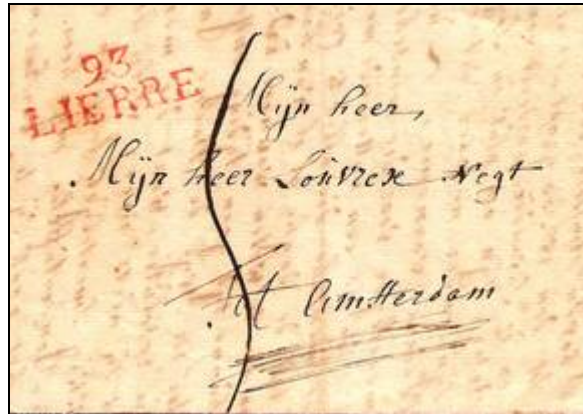 93
LIERRE
Mijn heer,
Mijn heer Louvrex Negt
Tot Amsterdam